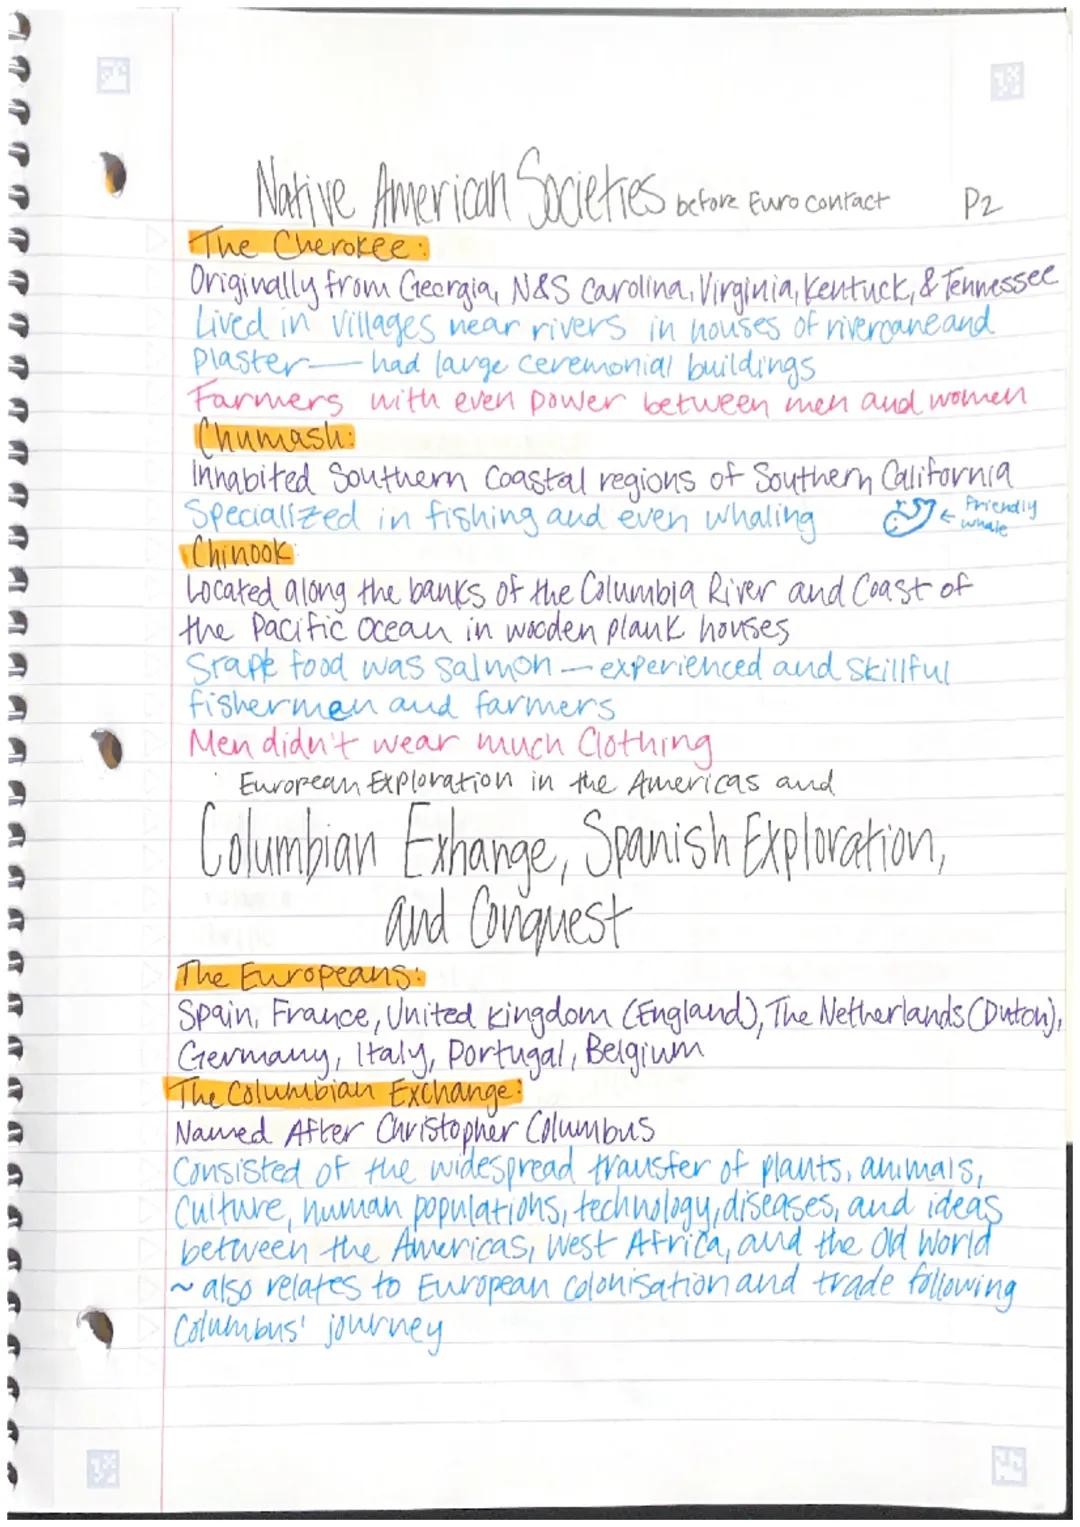 Native American Societies before Euro contact P2
The Cherokee:
Originally from Georgia, N&S Carolina, Virginia, Kentuck, & Tennessee
Lived in villages near rivers in houses of rivercane and
plaster — had large ceremonial buildings
Farmers with even power between men and women
Chumash:
Inhabited Southern Coastal regions of Southern California
Specialized in fishing and even whaling ← Friendly
whale
Chinook:
Located along the banks of the Columbia River and Coast of
the Pacific Ocean in wooden plank houses
Staple food was salmon — experienced and skillful
fishermen and farmers
Men didn't wear much Clothing
European Exploration in the Americas and
Columbian Exhange, Spanish Exploration,
and Conquest
The Europeans:
Spain, France, United kingdom (England), The Netherlands (Dutch),
Germany, Italy, Portugal, Belgium
The Columbian Exchange:
Named After Christopher Columbus
Consisted of the widespread transfer of plants, animals,
Culture, human populations, technology, diseases, and ideas
between the Americas, West Africa, and the Old World
~ also relates to European colonisation and trade following
Columbus' journey